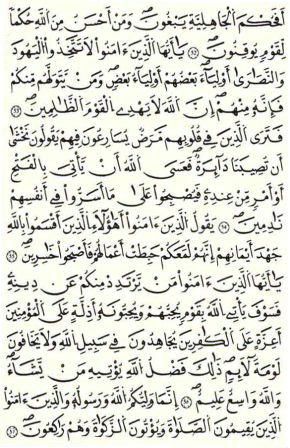 أَفَحُكْمَ الْجَاهِلِيَّةِ يَبْغُونَ وَمَنْ أَحْسَنُ مِنَ اللَّهِ حُكْمًا
لِّقَوْمٍ يُوقِنُونَ يَا أَيُّهَا الَّذِينَ ءَامَنُوا لَا تَتَّخِذُوا الْيَهُودَ
وَالنَّصَارَى أَوْلِيَاءَ بَعْضُهُمْ أَوْلِيَاءُ بَعْضٍ وَمَنْ يَتَوَلَّهُم مِّنكُمْ
فَإِنَّهُ مِنْهُمْ إِنَّ اللَّهَ لَا يَهْدِي الْقَوْمَ الظَّالِمِينَ
فَتَرَى الَّذِينَ فِي قُلُوبِهِم مَّرَضٌ يُسَارِعُونَ فِيهِمْ يَقُولُونَ نَخْشَى
أَن تُصِيبَنَا دَائِرَةٌ فَعَسَى اللَّهُ أَنْ يَأْتِيَ بِالْفَتْحِ
أَوْ أَمْرٍ مِّنْ عِندِهِ فَيُصْبِحُوا عَلَى مَا أَسَرُّوا فِي أَنفُسِهِمْ
نَادِمِينَ يَقُولُ الَّذِينَ ءَامَنُوا أَهَؤُلَاءِ الَّذِينَ أَقْسَمُوا بِاللَّهِ
جَهْدَ أَيْمَانِهِمْ إِنَّهُمْ لَمَعَكُمْ حَبِطَتْ أَعْمَالُهُمْ فَأَصْبَحُوا خَاسِرِينَ
يَا أَيُّهَا الَّذِينَ ءَامَنُوا مَنْ يَرْتَدِدْ مِنكُمْ عَن دِينِهِ
فَسَوْفَ يَأْتِي اللَّهُ بِقَوْمٍ يُحِبُّهُمْ وَيُحِبُّونَهُ أَذِلَّةٍ عَلَى الْمُؤْمِنِينَ
أَعِزَّةٍ عَلَى الْكَافِرِينَ يُجَاهِدُونَ فِي سَبِيلِ اللَّهِ وَلَا يَخَافُونَ
لَوْمَةَ لَائِمٍ ذَلِكَ فَضْلُ اللَّهِ يُؤْتِيهِ مَنْ يَشَاءُ
وَاللَّهُ وَاسِعٌ عَلِيمٌ إِنَّمَا وَلِيُّكُمُ اللَّهُ وَرَسُولُهُ وَالَّذِينَ ءَامَنُوا
الَّذِينَ يُقِيمُونَ الصَّلَوٰةَ وَيُؤْتُونَ الزَّكَوٰةَ وَهُمْ رَاكِعُونَ